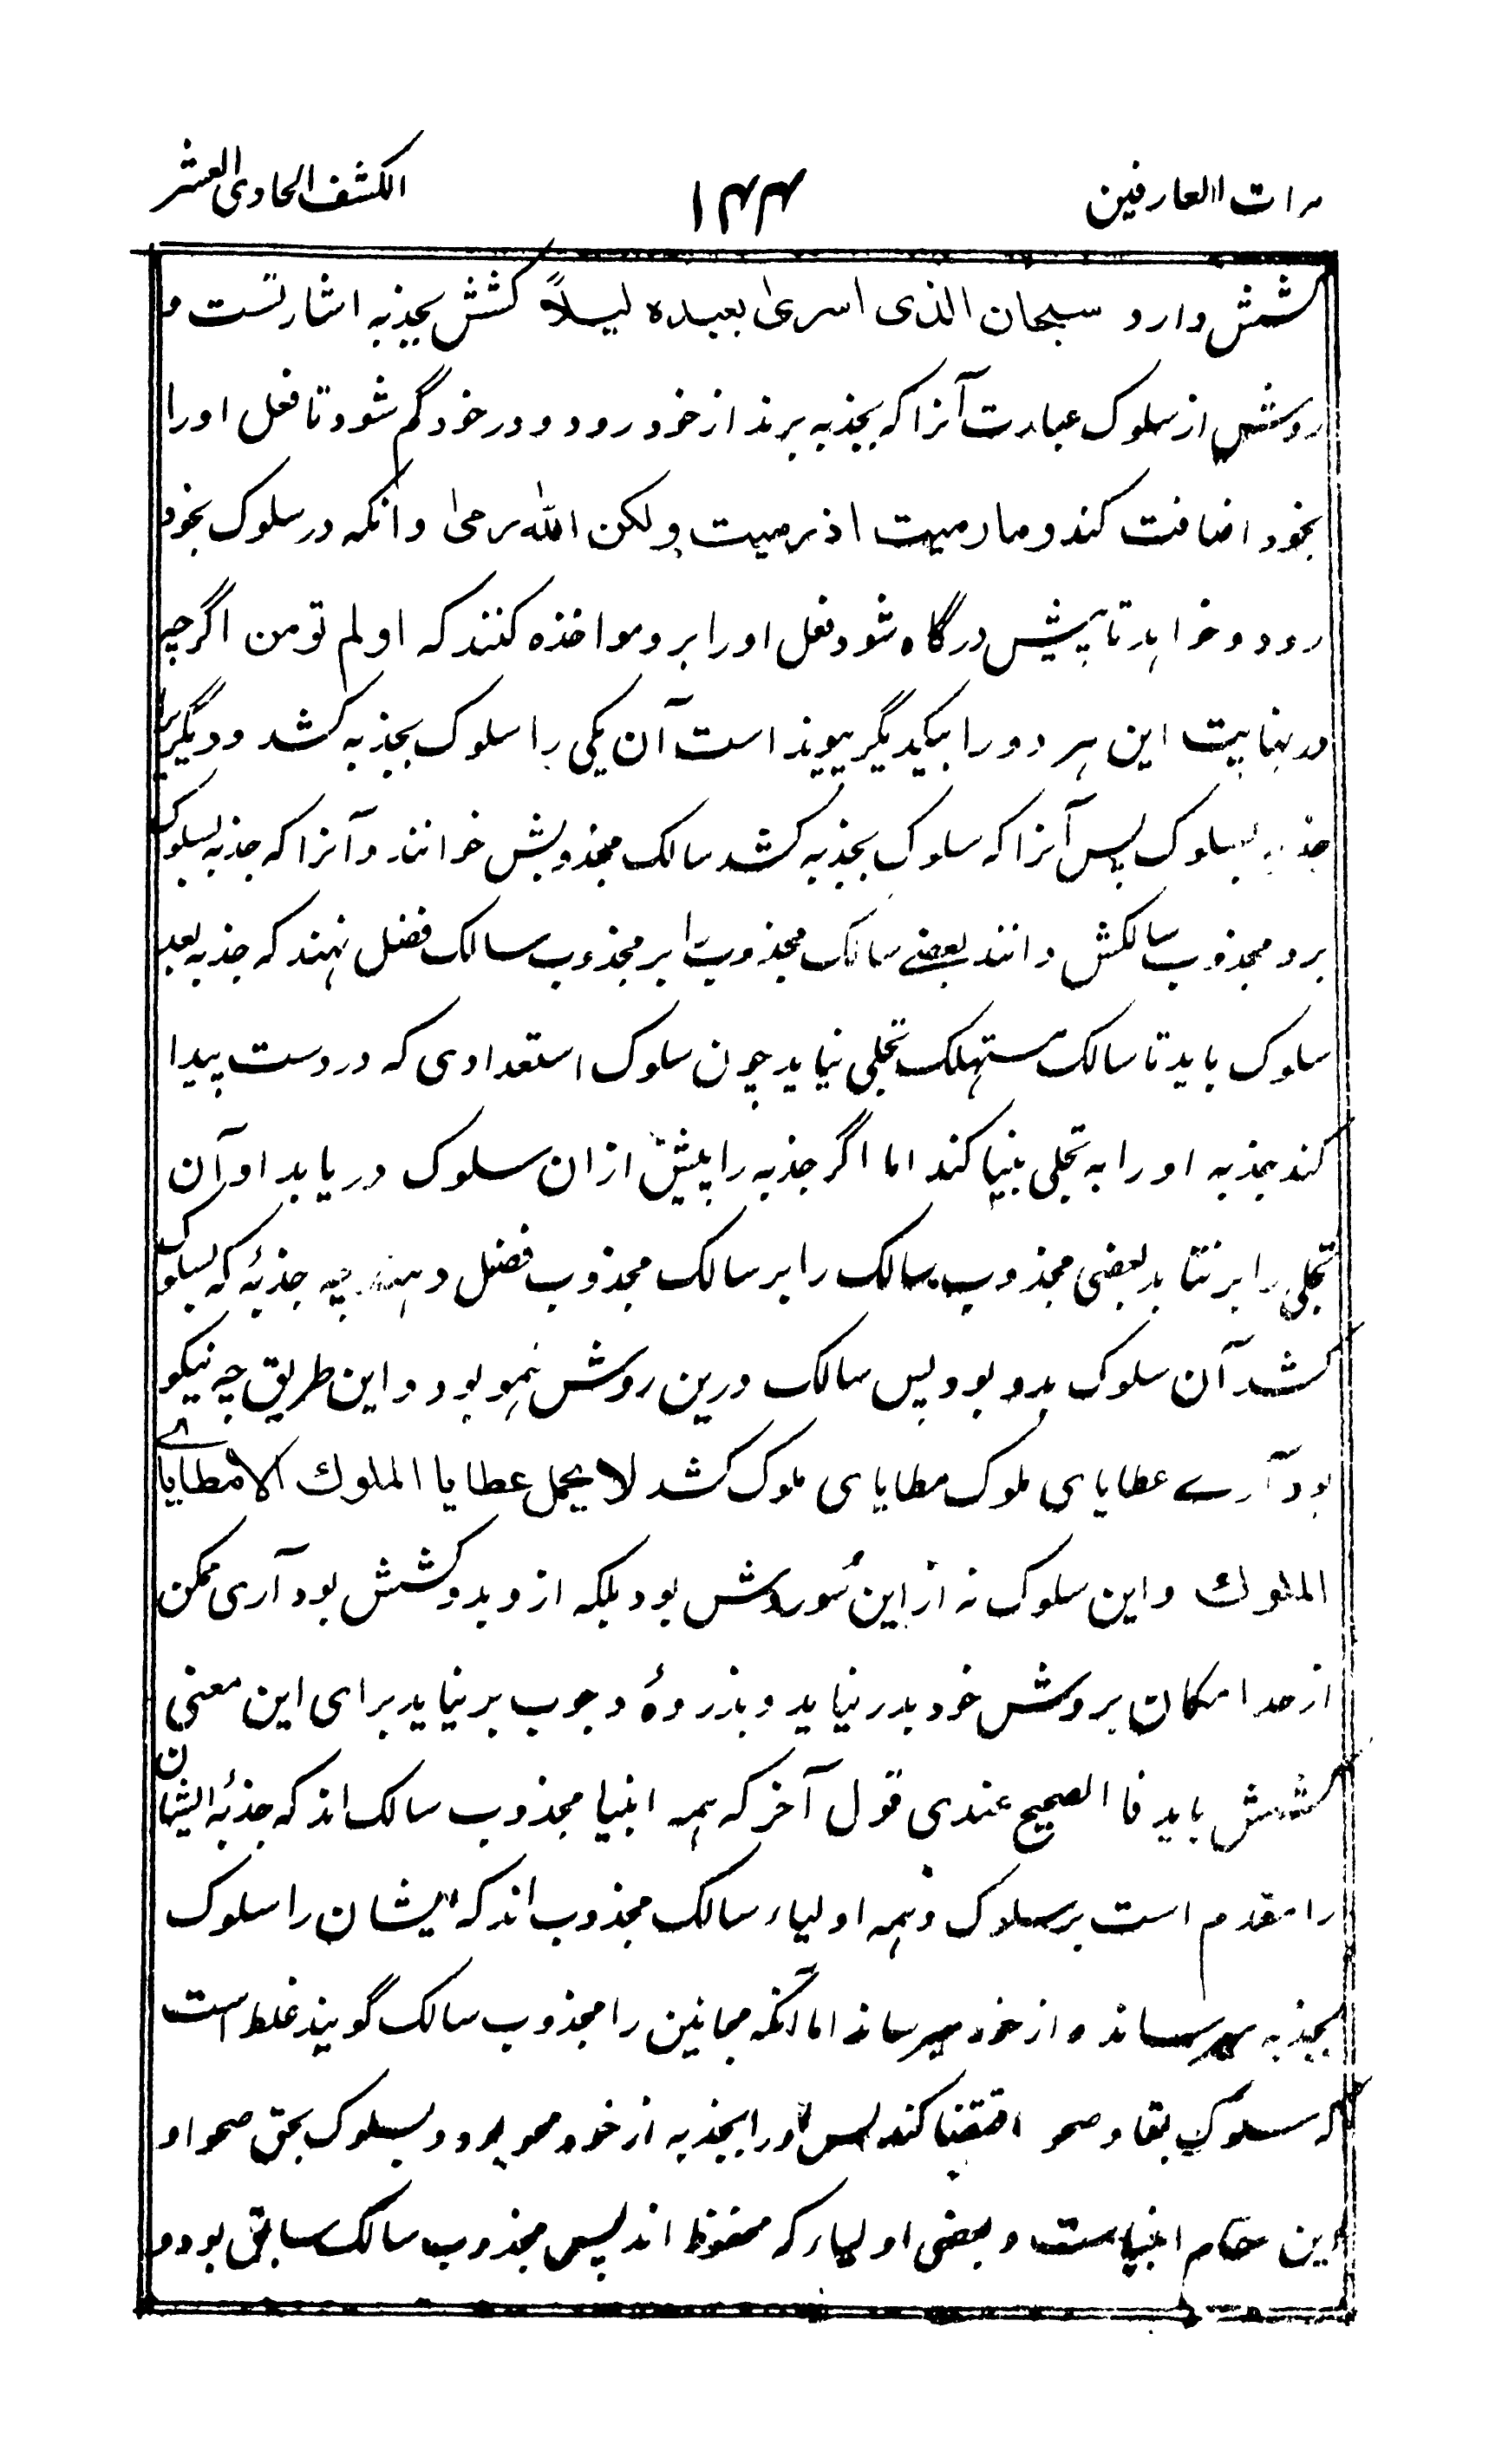 مرات العارفین ۱۴۴ الکشف الحادی العشر
کشش دارد سبحان الذی اسری بعبده لیلاً کشش بجذبه اشارتست و
روش از سلوک عبارت آنرا که بجذبه برند از خود رود و در خود گم شود تا فعل او را
بخود اضافت کند و ما رمیت اذ رمیت ولکن الله رمی و آنکه در سلوک بخود
رود و خواهد تا پیش درگاه شود فعل او را برو مواخذه کنند که اولم تومن اگرچه
در نهایت این هر دو را بیکدیگر پیوند است آن یکی را سلوک بجذبه کشد و دیگریرا
جذبه بسلوک پس آنرا که سلوک بجذبه کشد سالک مجذوبش خوانند و آنرا که جذبه بسلوک
برد مجذوب سالکش دانند بعضے سالک مجذوب را بر مجذوب سالک فضل نهند که جذبه بعد
سلوک باید تا سالک مستهلک تجلی نیاید چون سلوک استعدادی که در دست پیدا
کند جذبه او را به تجلی بینا کند اما اگر جذبه را پیش ازان سلوک دریابد او آن
تجلی را برنتابد بعضی مجذوب سالک را بر سالک مجذوب فضل دهند چه جذبهٔ که بسلوک
کشد آن سلوک بدو بود پس سالک درین روش نمو بود و این طریق چه نیکو
بود آرے عطایای ملوک مطایای ملوک کشد لا یحمل عطایا الملوک الا مطایاے
الملوک و این سلوک نه از این سو روش بود بلکه ازو بدو کشش بود آری ممکن
از حد امکان بروش خود بدر نیاید و بذروهٔ وجوب برنیاید برای این معنی
کشش باید فا الصحیح عندی قول آخر که همه انبیا مجذوب سالک اند که جذبهٔ ایشان
را مقدم است بر سلوک و همه اولیاء سالک مجذوب اند که ایشان را سلوک
بجذبه میرساند و از خود میرساند اما آنکه مجانین را مجذوب سالک گویند غلط است
که سلوک بقا و صحو اقتضا کند پس او را بجذبه از خود محو بود و بسلوک بحق صحو او
این مقام انبیاست و بعضی اولیاء که محفوظ اند پس مجذوب سالک سابق بود و